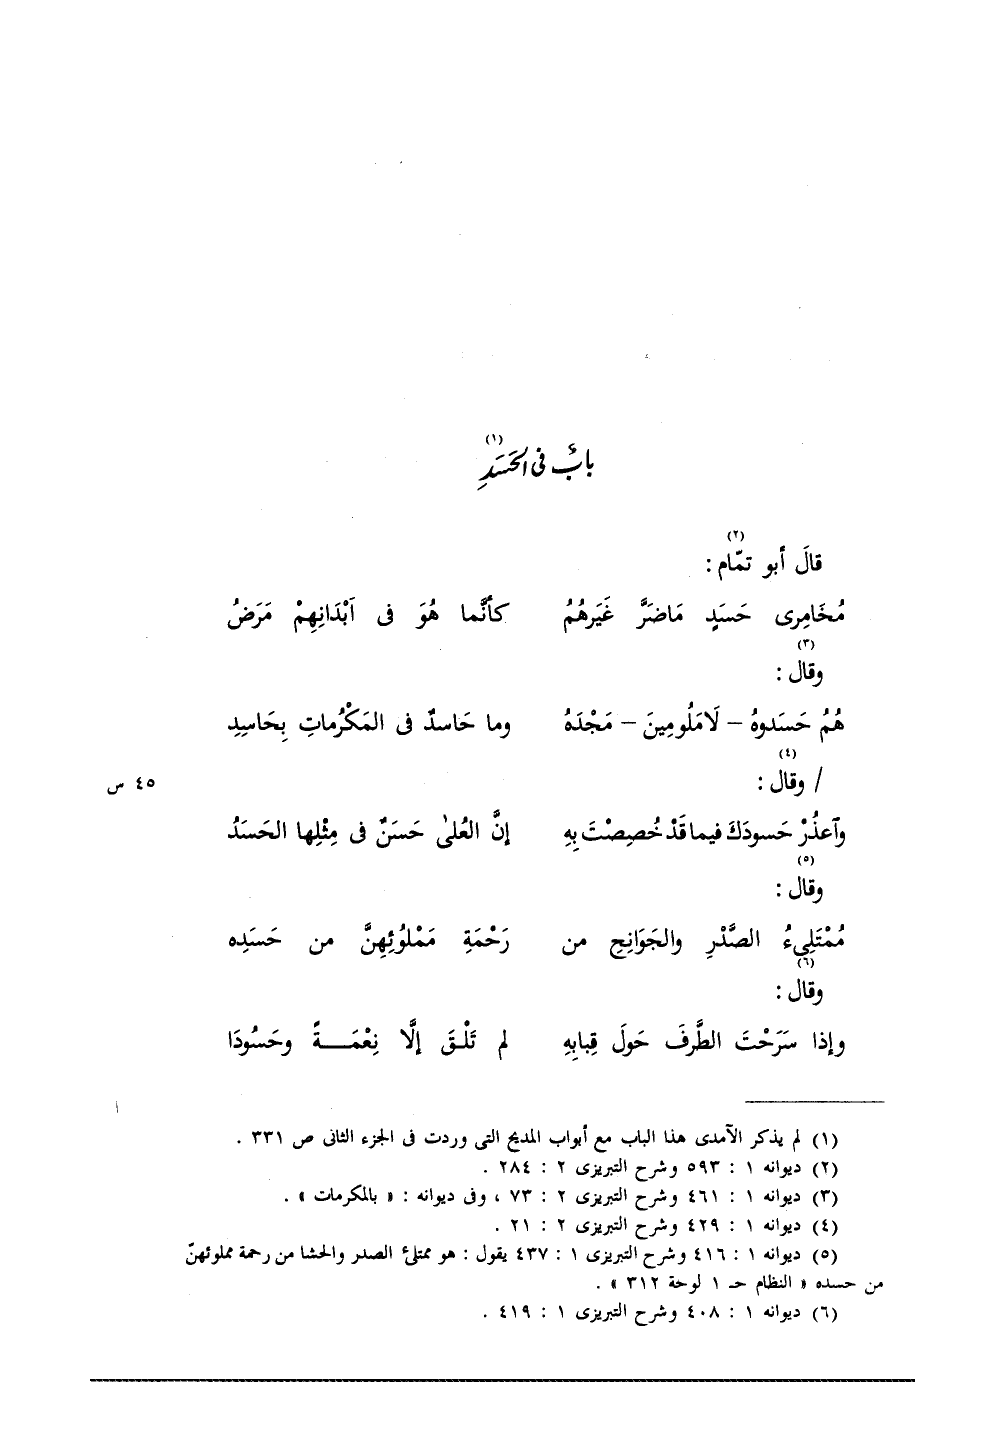 بابٌ فى الحَسَدِ (١)
قالَ أبو تمّام (٢) :
مُخَامِرِى حَسَدٍ مَاضَرَّ غَيَرهُمُ كأنَّما هُوَ فى اَبْدَانِهِمْ مَرَضُ
وقال (٣) :
هُمُ حَسَدوهُ – لَامَلُومِينَ – مَجْدَهُ وما حَاسدٌ فى المَكْرُماتِ بِحَاسِدِ
/ وقال (٤) : ٤٥ س
وآعذُرْ حَسودَكَ فيما قَدْ خُصِصْتَ بِهِ إنَّ العُلىٰ حَسَنٌ فى مِثْلِها الحَسَدُ
وقال (٥) :
مُمْتَلِىءُ الصَّدْرِ والجَوَانِحِ من رَحْمَةِ مَمْلوُئِهِنَّ من حَسَدِه
وقال (٦) :
وإذا سَرَحْتَ الطَّرفَ حَولَ قِبابِهِ لم تَلْقَ إلَّا نِعْمَـــةً وحَسُودَا
(١) لم يذكر الآمدى هذا الباب مع أبواب المديح التى وردت فى الجزء الثانى ص ٣٣١ .
(٢) ديوانه ١ : ٥٩٣ وشرح التبريزى ٢ : ٢٨٤ .
(٣) ديوانه ١ : ٤٦١ وشرح التبريزى ٢ : ٧٣ ، وفى ديوانه : « بالمكرمات » .
(٤) ديوانه ١ : ٤٢٩ وشرح التبريزى ٢ : ٢١ .
(٥) ديوانه ١ : ٤١٦ وشرح التبريزى ١ : ٤٣٧ يقول : هو ممتلئ الصدر والحشا من رحمة مملوئهنّ
من حسده « النظام حـ ١ لوحة ٣١٢ » .
(٦) ديوانه ١ : ٤٠٨ وشرح التبريزى ١ : ٤١٩ .